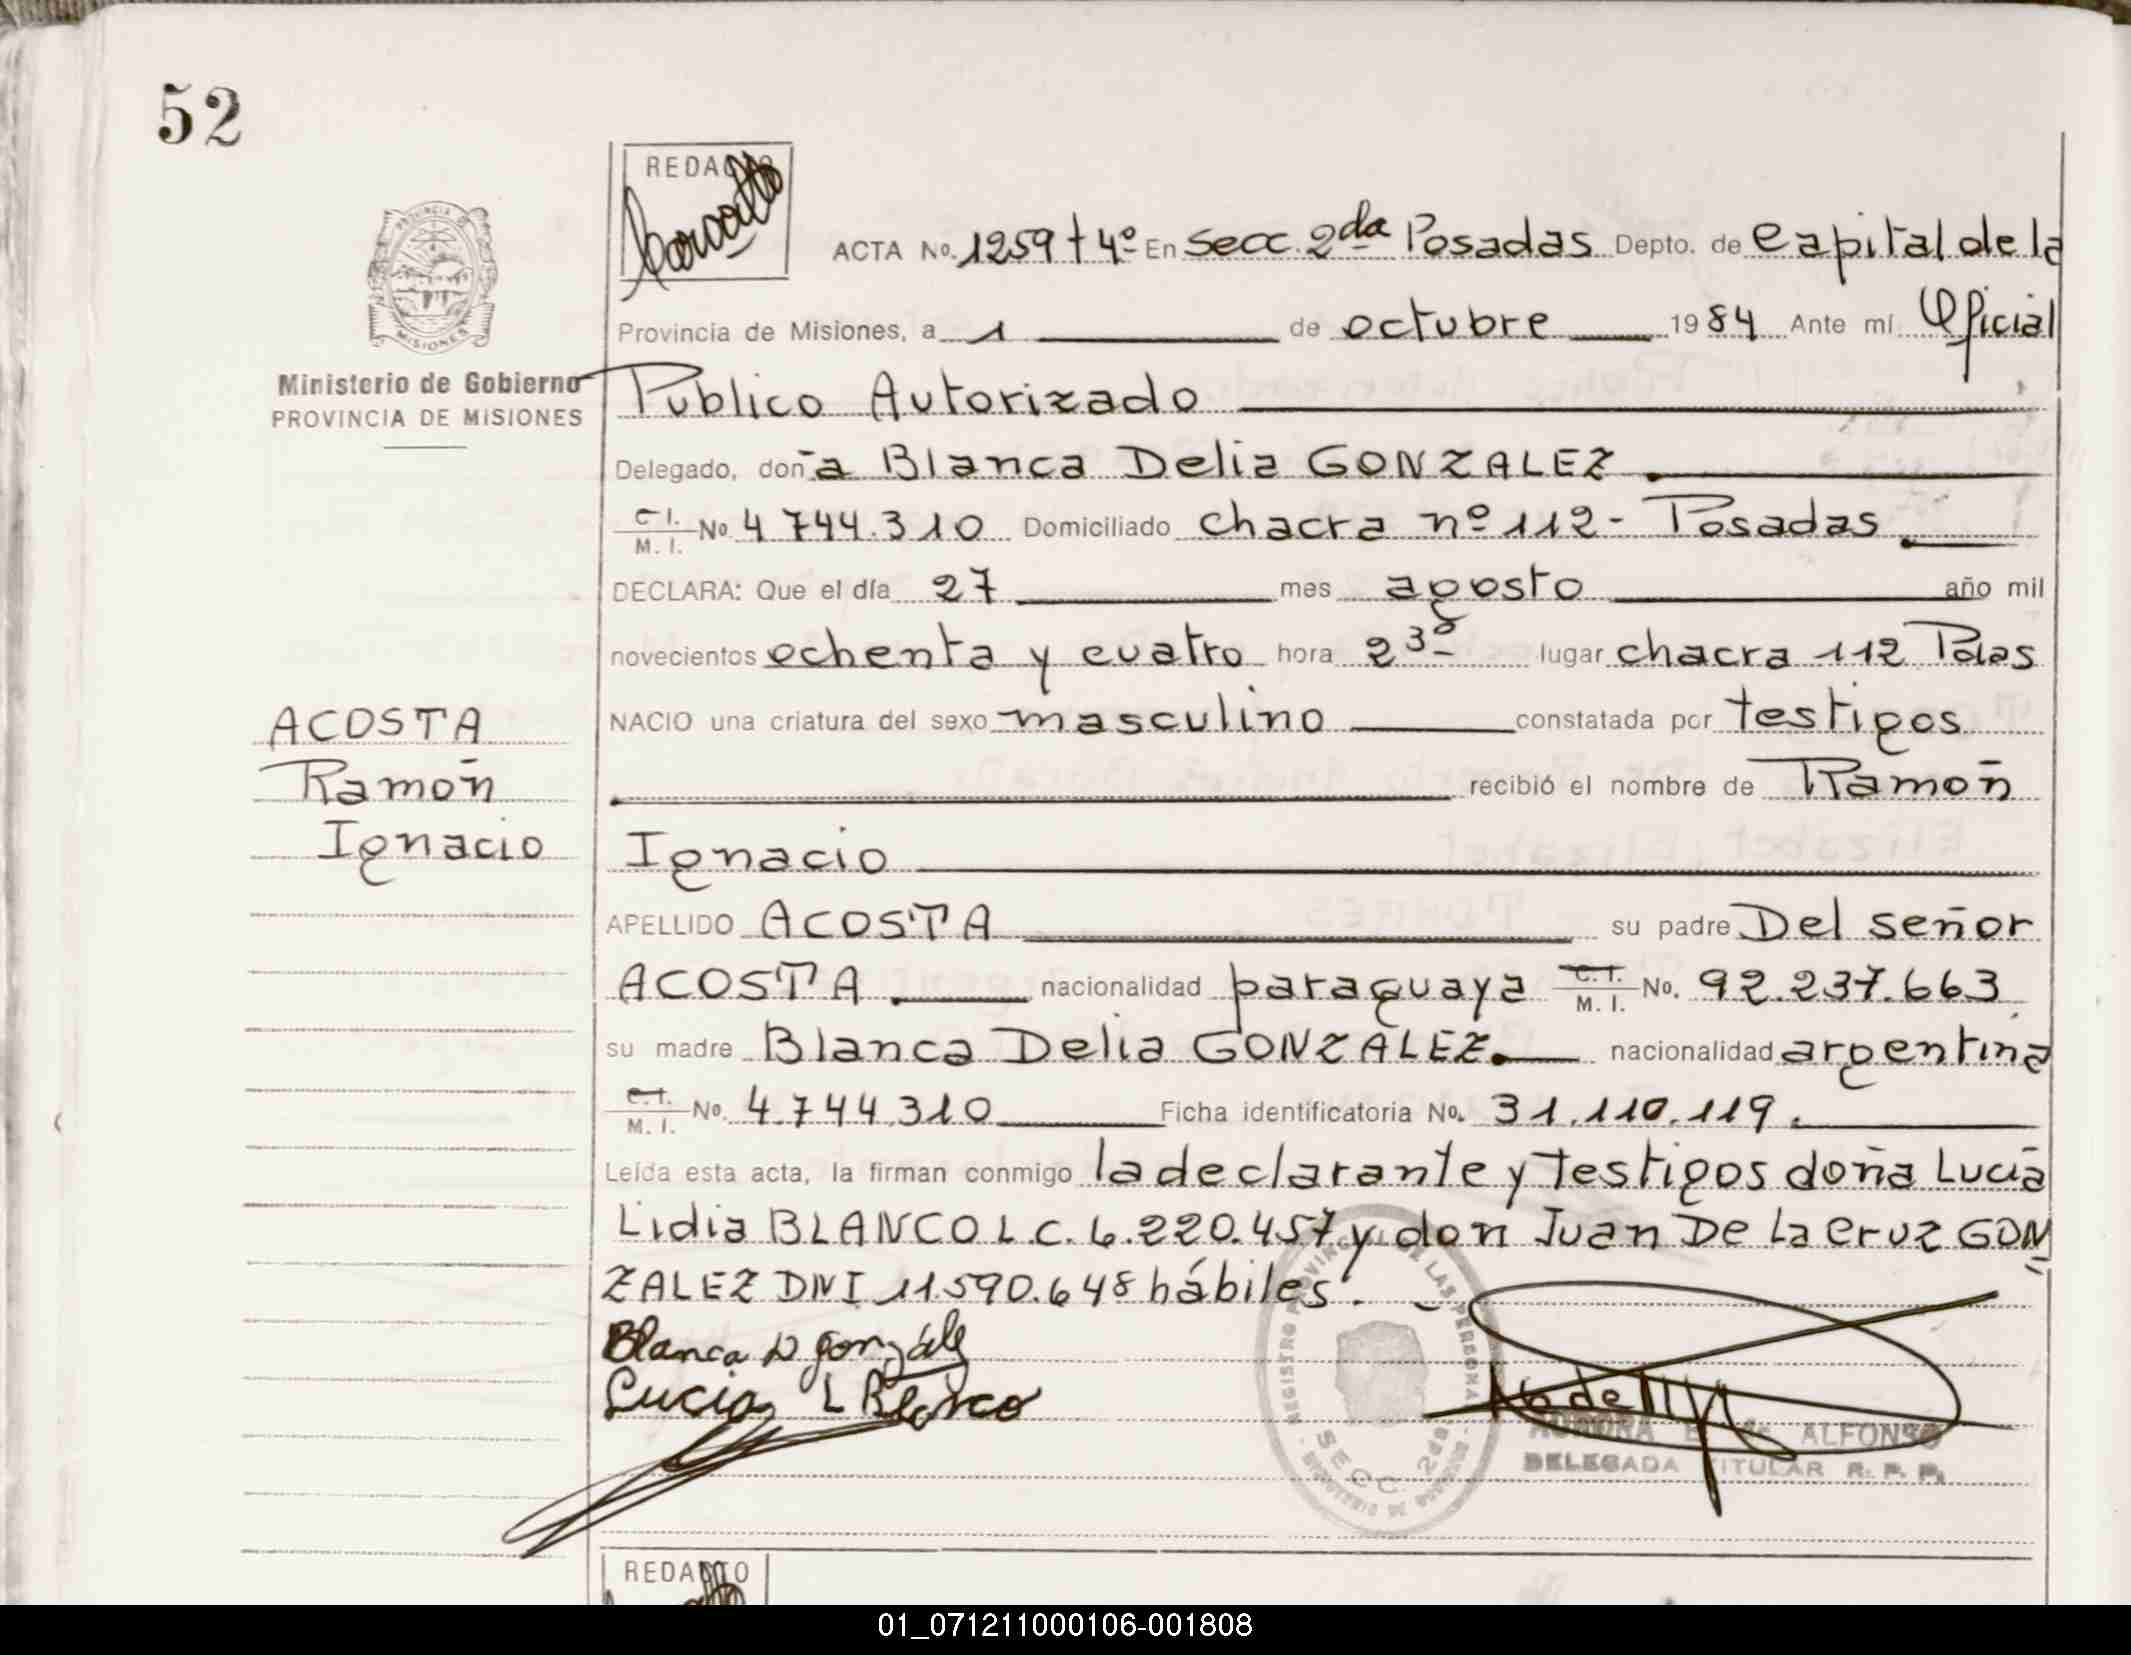 52
REDACTO
ACTA No. 1259 t 4º En Secc. 2da Posadas Depto. de Capital de la
Provincia de Misiones, a 1 de octubre 1984 Ante mí Oficial
Ministerio de Gobierno
PROVINCIA DE MISIONES
Público Autorizado
Delegado, doña Blanca Delia GONZALEZ.
C I. M. I. No. 4 744.310 Domiciliado chacra nº 112 - Posadas.
DECLARA: Que el día 27 mes agosto año mil
novecientos ochenta y cuatro hora 23- lugar chacra 112 Pdas
NACIO una criatura del sexo masculino constatada por testigos
recibió el nombre de Ramón
Ignacio
ACOSTA
Ramón
Ignacio
APELLIDO ACOSTA su padre Del señor
ACOSTA. nacionalidad paraguaya C. I. M. I. No. 92.237.663
su madre Blanca Delia GONZALEZ. nacionalidad argentina
C. I. M. I. No. 4.744.310 Ficha identificatoria No. 31.110.119.
Leída esta acta, la firman conmigo la declarante y testigos doña Lucía
Lidia BLANCO L.C. 6.220.457 y don Juan De La Cruz GON
ZALEZ DNI 11.590.648 hábiles.
Blanca D González
Lucia L Blanco
REGISTRO PROVINCIAL DE LAS PERSONAS
SECC. 2da
AURORA E. de ALFONSO
DELEGADA TITULAR R. P. P.
REDACTO
01_071211000106-001808